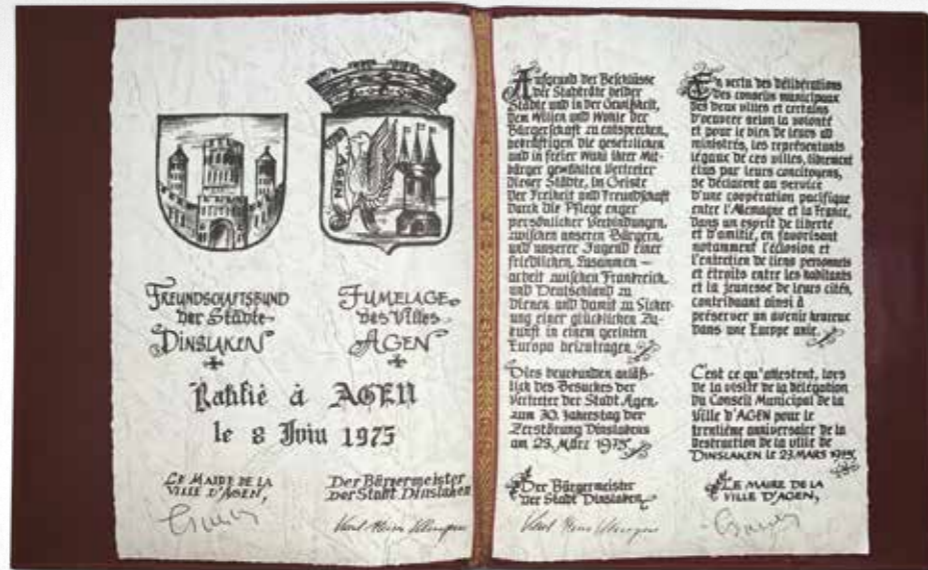 FREUNDSCHAFTSBUND
der Städte
DINSLAKEN
JUMELAGE
des Villes
AGEN
Ratifié à AGEN
le 8 Juin 1975
LE MAIRE DE LA
VILLE D'AGEN,
Der Bürgermeister
der Stadt Dinslaken
Aufgrund der Beschlüsse
der Stadträte beider
Städte und in der Gewißheit,
dem Willen und Wohle der
Bürgerschaft zu entsprechen,
bekräftigen die gesetzlichen
und in freier Wahl ihrer Mit-
bürger gewählten Vertreter
dieser Städte, im Geiste
der Freiheit und Freundschaft
durch die Pflege enger
persönlicher Verbindungen,
zwischen unseren Bürgern,
und unserer Jugend einer
friedlichen Zusammen –
arbeit zwischen Frankreich
und Deutschland zu
dienen und damit zu Sicher-
ung einer glücklichen Zu-
kunft in einem geeinten
Europa beizutragen.
Dies beurkunden anläß-
lich des Besuches der
Vertreter der Stadt Agen,
zum 30. Jahrestag der
Zerstörung Dinslakens
am 23. März 1975
Der Bürgermeister
der Stadt Dinslaken
En vertu des délibérations
des conseils municipaux
des deux villes et certains
d'œuvrer selon la volonté
et pour le bien de leurs ad
ministrés, les représentants
légaux de ces villes, librement
élus par leurs concitoyens,
se déclarent au service
d'une coopération pacifique
entre l'Allemagne et la France,
dans un esprit de liberté
et d'amitié, en favorisant
notamment l'éclosion et
l'entretien de liens personnels
et étroits entre les habitants
et la jeunesse de leurs cités,
contribuant ainsi à
préserver un avenir heureux
dans une Europe unie.
C'est ce qu'attestent, lors
de la visite de la délégation
du Conseil Municipal de la
Ville d'AGEN pour le
trentième anniversaire de la
destruction de la ville de
DINSLAKEN le 23 MARS 1975
LE MAIRE DE LA
VILLE D'AGEN,